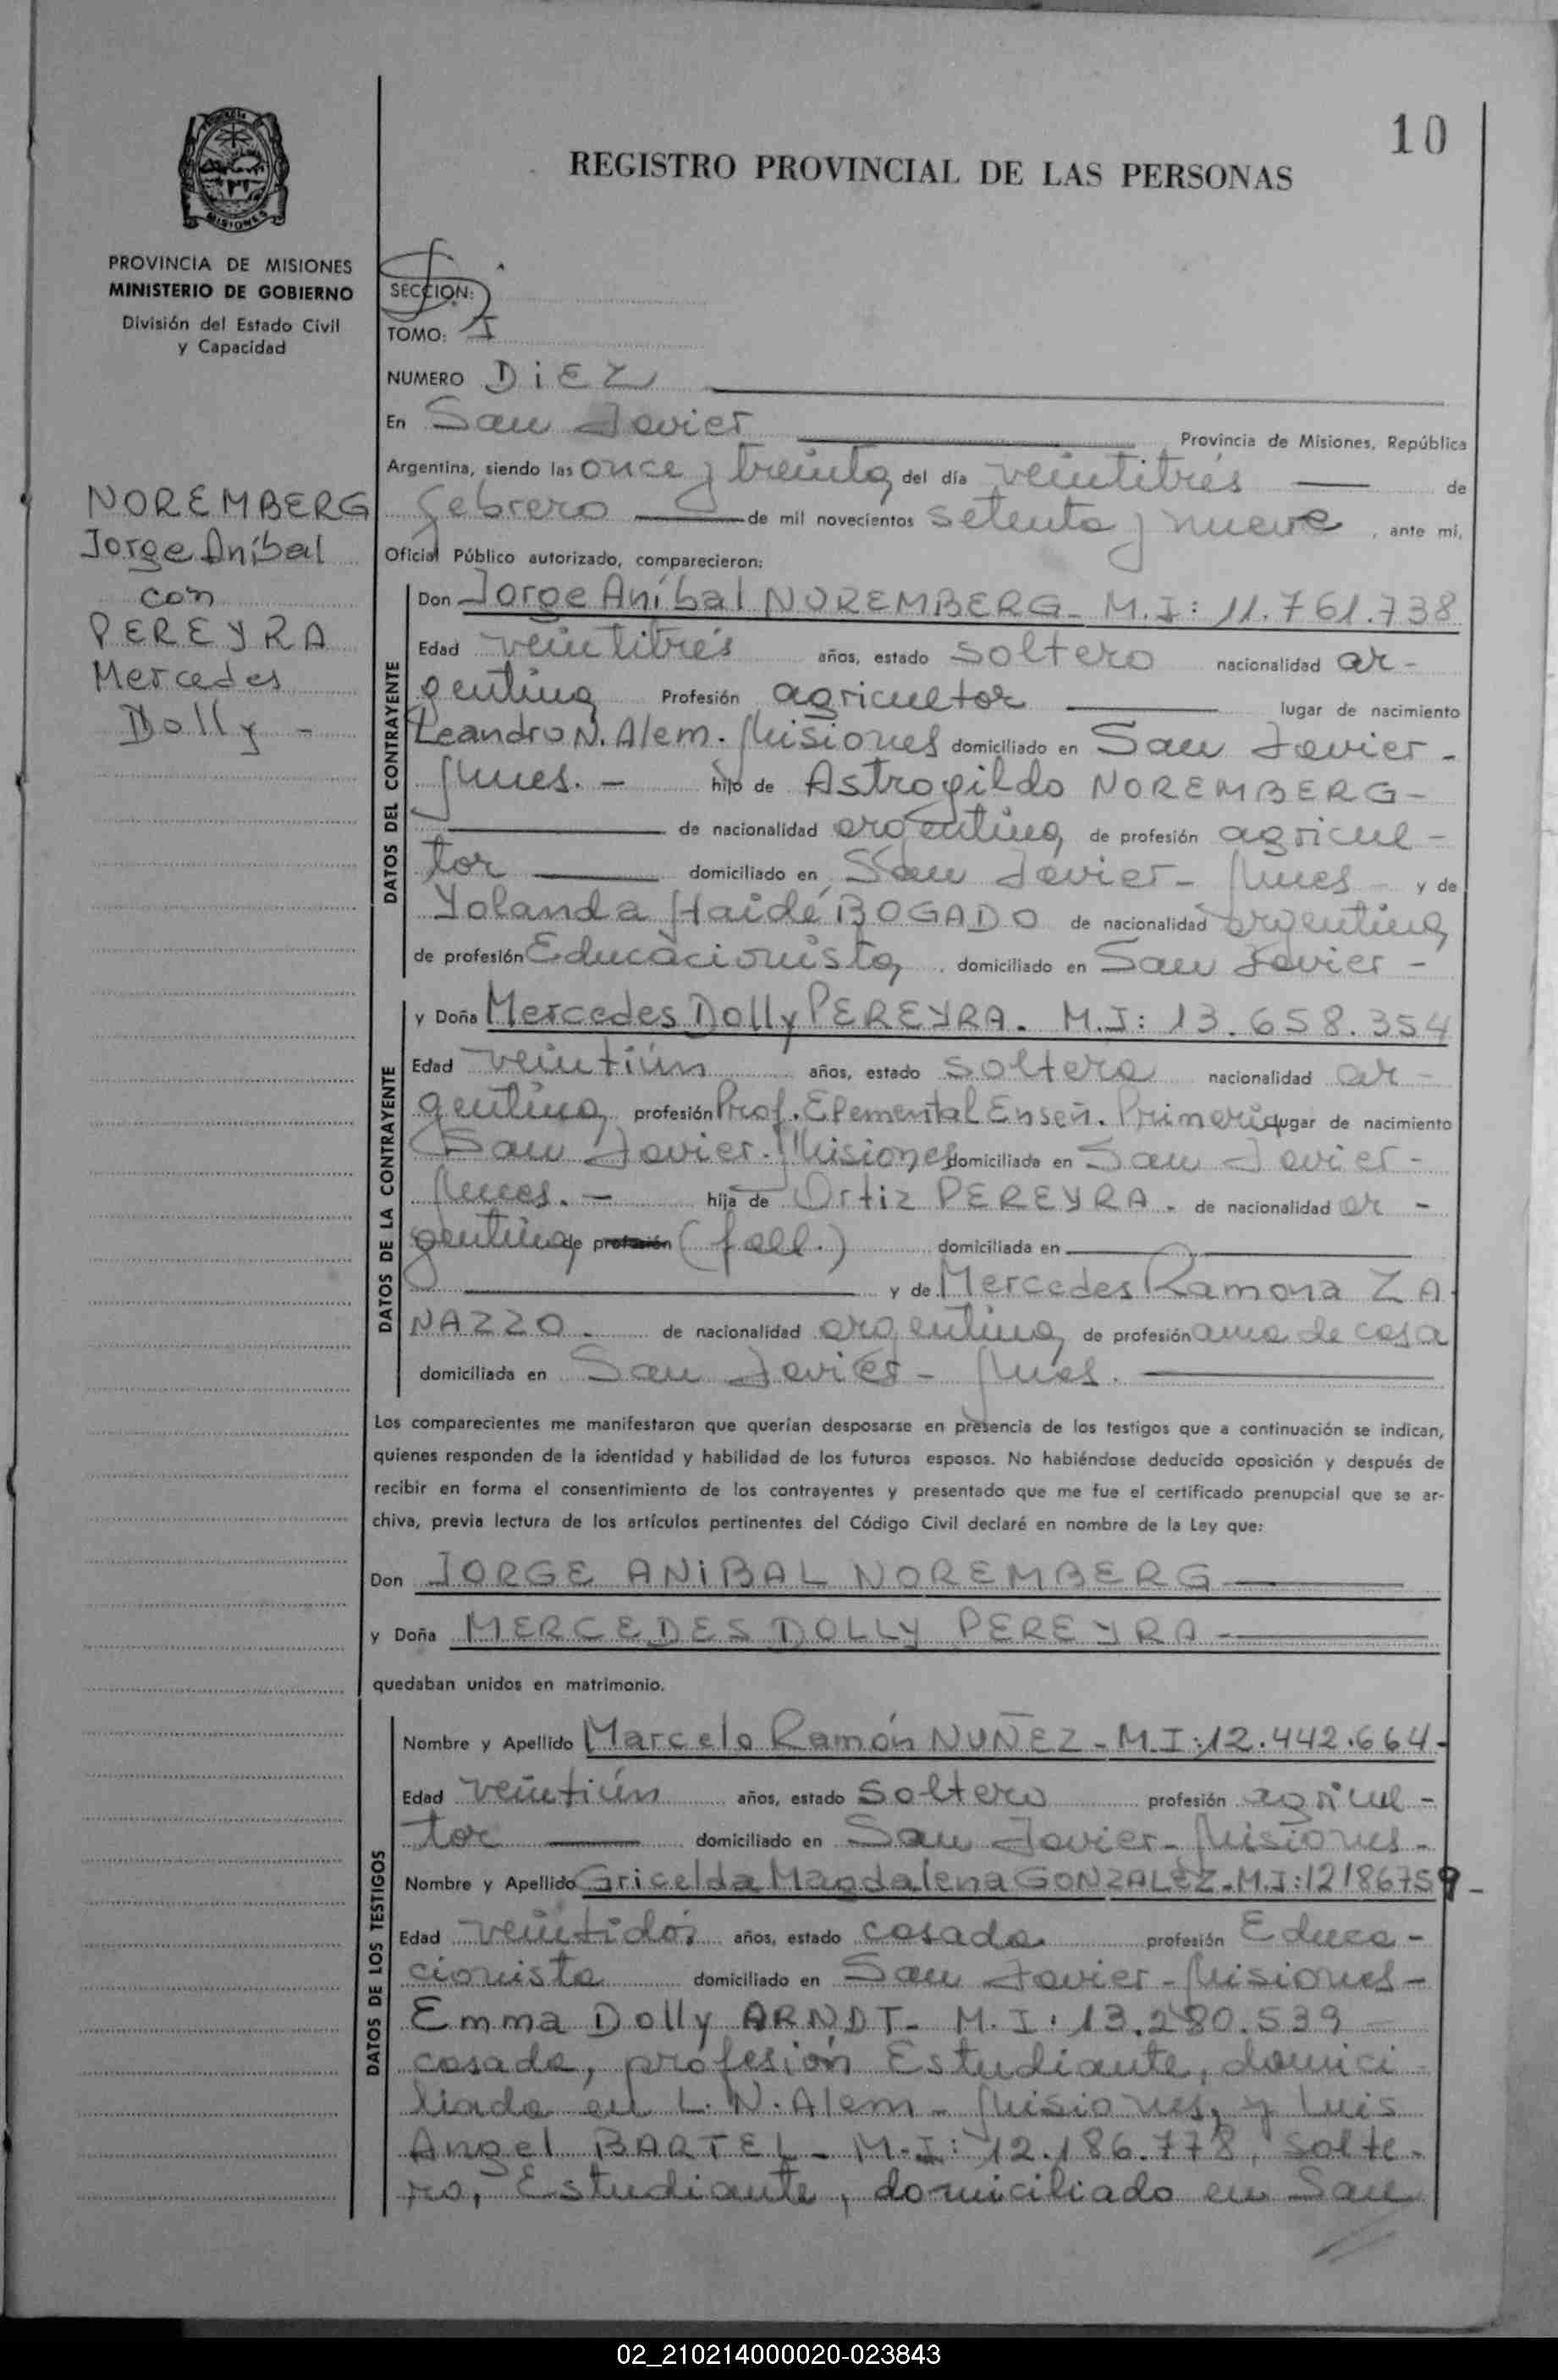 10
REGISTRO PROVINCIAL DE LAS PERSONAS
MISIONES
PROVINCIA DE MISIONES
MINISTERIO DE GOBIERNO
División del Estado Civil
y Capacidad
SECCION:
TOMO: I
NUMERO DiEZ
En San Javier Provincia de Misiones, República
Argentina, siendo las once y treinta del día veintitrés de
febrero de mil novecientos setenta y nueve, ante mí,
Oficial Público autorizado, comparecieron:
NOREMBERG
Jorge Aníbal
con
PEREYRA
Mercedes
Dolly -
DATOS DEL CONTRAYENTE
Don Jorge Aníbal NOREMBERG - M.I: 11.761.738
Edad veintitrés años, estado soltero nacionalidad ar-
gentina Profesión agricultor lugar de nacimiento
Leandro N. Alem. Misiones domiciliado en San Javier -
Mnes. - hijo de Astrogildo NOREMBERG -
de nacionalidad argentina de profesión agricul-
tor domiciliado en San Javier - Mnes y de
Yolanda Haidé BOGADO de nacionalidad argentina
de profesión Educacionista, domiciliado en San Javier -
DATOS DE LA CONTRAYENTE
y Doña Mercedes Dolly PEREYRA. M.I: 13.658.354
Edad veintiún años, estado soltera nacionalidad ar-
gentina profesión Prof. Elemental Enseñ. Primaria lugar de nacimiento
San Javier. Misiones domiciliada en San Javier -
Mnes. - hija de Ortiz PEREYRA. de nacionalidad ar -
gentina de profesión (fall.) domiciliada en
y de Mercedes Ramona ZA
NAZZO. de nacionalidad argentina de profesión ama de casa
domiciliada en San Javier - Mnes.
Los comparecientes me manifestaron que querían desposarse en presencia de los testigos que a continuación se indican,
quienes responden de la identidad y habilidad de los futuros esposos. No habiéndose deducido oposición y después de
recibir en forma el consentimiento de los contrayentes y presentado que me fue el certificado prenupcial que se ar-
chiva, previa lectura de los artículos pertinentes del Código Civil declaré en nombre de la Ley que:
Don JORGE ANiBAL NOREMBERG
y Doña MERCEDES DOLLY PEREYRA -
quedaban unidos en matrimonio.
DATOS DE LOS TESTIGOS
Nombre y Apellido Marcelo Ramón NUÑEZ - M.I: 12.442.664-
Edad veintiún años, estado soltero profesión agricul-
tor domiciliado en San Javier - Misiones -
Nombre y Apellido Gricelda Magdalena GONZALEZ. M.I: 12186759 -
Edad veintidós años, estado casada profesión Educa-
cionista domiciliado en San Javier - Misiones -
Emma Dolly ARNDT - M.I: 13.280.539 -
casada, profesión Estudiante, domici
liada en L. N. Alem - Misiones, y Luis
Angel BARTEL - M.I: 12.186.778, solte-
ro, Estudiante, domiciliado en San
02_210214000020-023843